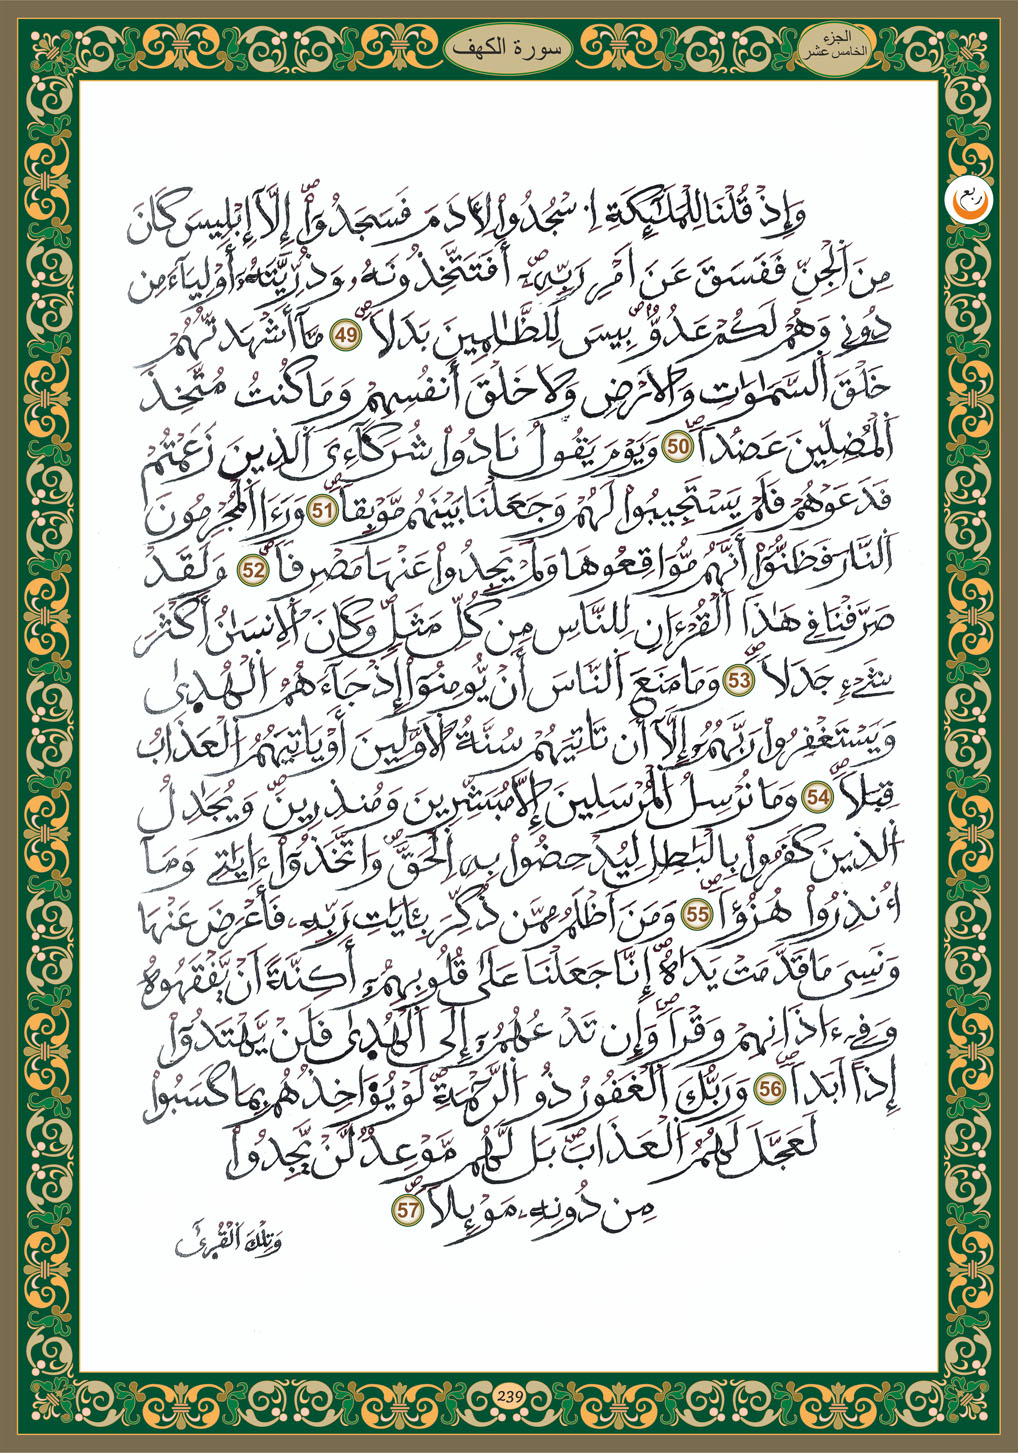 سورة الكهف
الجزء
الخامس عشر
ربع
وَإِذْ قُلْنَا لِلْمَلَٰٓئِكَةِ اِ۟سْجُدُوا۟ لِأَدَمَ فَسَجَدُوٓا۟ إِلَّآ إِبْلِيسَ كَانَ
مِنَ اَ۬لْجِنِّ فَفَسَقَ عَنَ اَمْرِ رَبِّهِۦٓ أَفَتَتَّخِذُونَهُۥ وَذُرِّيَّتَهُۥٓ أَوْلِيَآءَ مِن
دُونِے وَهُمْ لَكُمْ عَدُوُّۢ بِيسَ لِلظَّٰلِمِينَ بَدَلاٗ 49 مَّآ أَشْهَدتُّهُمْ
خَلْقَ اَ۬لسَّمَٰوَٰتِ وَالَارْضِ وَلَا خَلْقَ أَنفُسِهِمْ وَمَا كُنتُ مُتَّخِذَ
اَ۬لْمُضِلِّينَ عَضُداٗ 50 وَيَوْمَ يَقُولُ نَادُوا۟ شُرَكَآءِيَ اَ۬لذِينَ زَعَمْتُمْ
فَدَعَوْهُمْ فَلَمْ يَسْتَجِيبُوا۟ لَهُمْ وَجَعَلْنَا بَيْنَهُم مَّوْبِقاٗ 51 وَرَءَا اَ۬لْمُجْرِمُونَ
اَ۬لنَّارَ فَظَنُّوٓا۟ أَنَّهُم مُّوَاقِعُوهَا وَلَمْ يَجِدُوا۟ عَنْهَا مَصْرِفاٗ 52 وَلَقَدْ
صَرَّفْنَا فِے هَٰذَا اَ۬لْقُرْءَانِ لِلنَّاسِ مِن كُلِّ مَثَلٖ وَكَانَ اَ۬لِانسَٰنُ أَكْثَرَ
شَےْءٖ جَدَلاٗ 53 وَمَا مَنَعَ اَ۬لنَّاسَ أَنْ يُّومِنُوٓا۟ إِذْ جَآءَهُمُ اُ۬لْهُدَىٰ
وَيَسْتَغْفِرُوا۟ رَبَّهُمُۥٓ إِلَّآ أَن تَاتِيَهُمْ سُنَّةُ اُ۬لَاوَّلِينَ أَوْ يَاتِيَهُمُ اُ۬لْعَذَابُ
قِبَلاٗ 54 وَمَا نُرْسِلُ اُ۬لْمُرْسَلِينَ إِلَّا مُبَشِّرِينَ وَمُنذِرِينَ وَيُجَٰدِلُ
اُ۬لذِينَ كَفَرُوا۟ بِالْبَٰطِلِ لِيُدْحِضُوا۟ بِهِ اِ۬لْحَقَّ وَاتَّخَذُوٓا۟ ءَايَٰتِے وَمَآ
أُنذِرُوا۟ هُزُؤاٗ 55 وَمَنَ اَظْلَمُ مِمَّن ذُكِّرَ بِـَٔايَٰتِ رَبِّهِۦ فَأَعْرَضَ عَنْهَا
وَنَسِيَ مَا قَدَّمَتْ يَدَاهُ إِنَّا جَعَلْنَا عَلَىٰ قُلُوبِهِمُۥٓ أَكِنَّةً اَنْ يَّفْقَهُوهُ
وَفِےٓ ءَاذَانِهِمْ وَقْراٗ وَإِن تَدْعُهُمُۥٓ إِلَى اَ۬لْهُدَىٰ فَلَنْ يَّهْتَدُوٓا۟
إِذاً اَبَداٗ 56 وَرَبُّكَ اَ۬لْغَفُورُ ذُو اُ۬لرَّحْمَةِ لَوْ يُؤَاخِذُهُم بِمَا كَسَبُوا۟
لَعَجَّلَ لَهُمُ اُ۬لْعَذَابَ بَل لَّهُم مَّوْعِدٌ لَّنْ يَّجِدُوا۟
مِن دُونِهِۦ مَوْئِلاٗ 57
وَتِلْكَ اَ۬لْقُرَىٰٓ
239